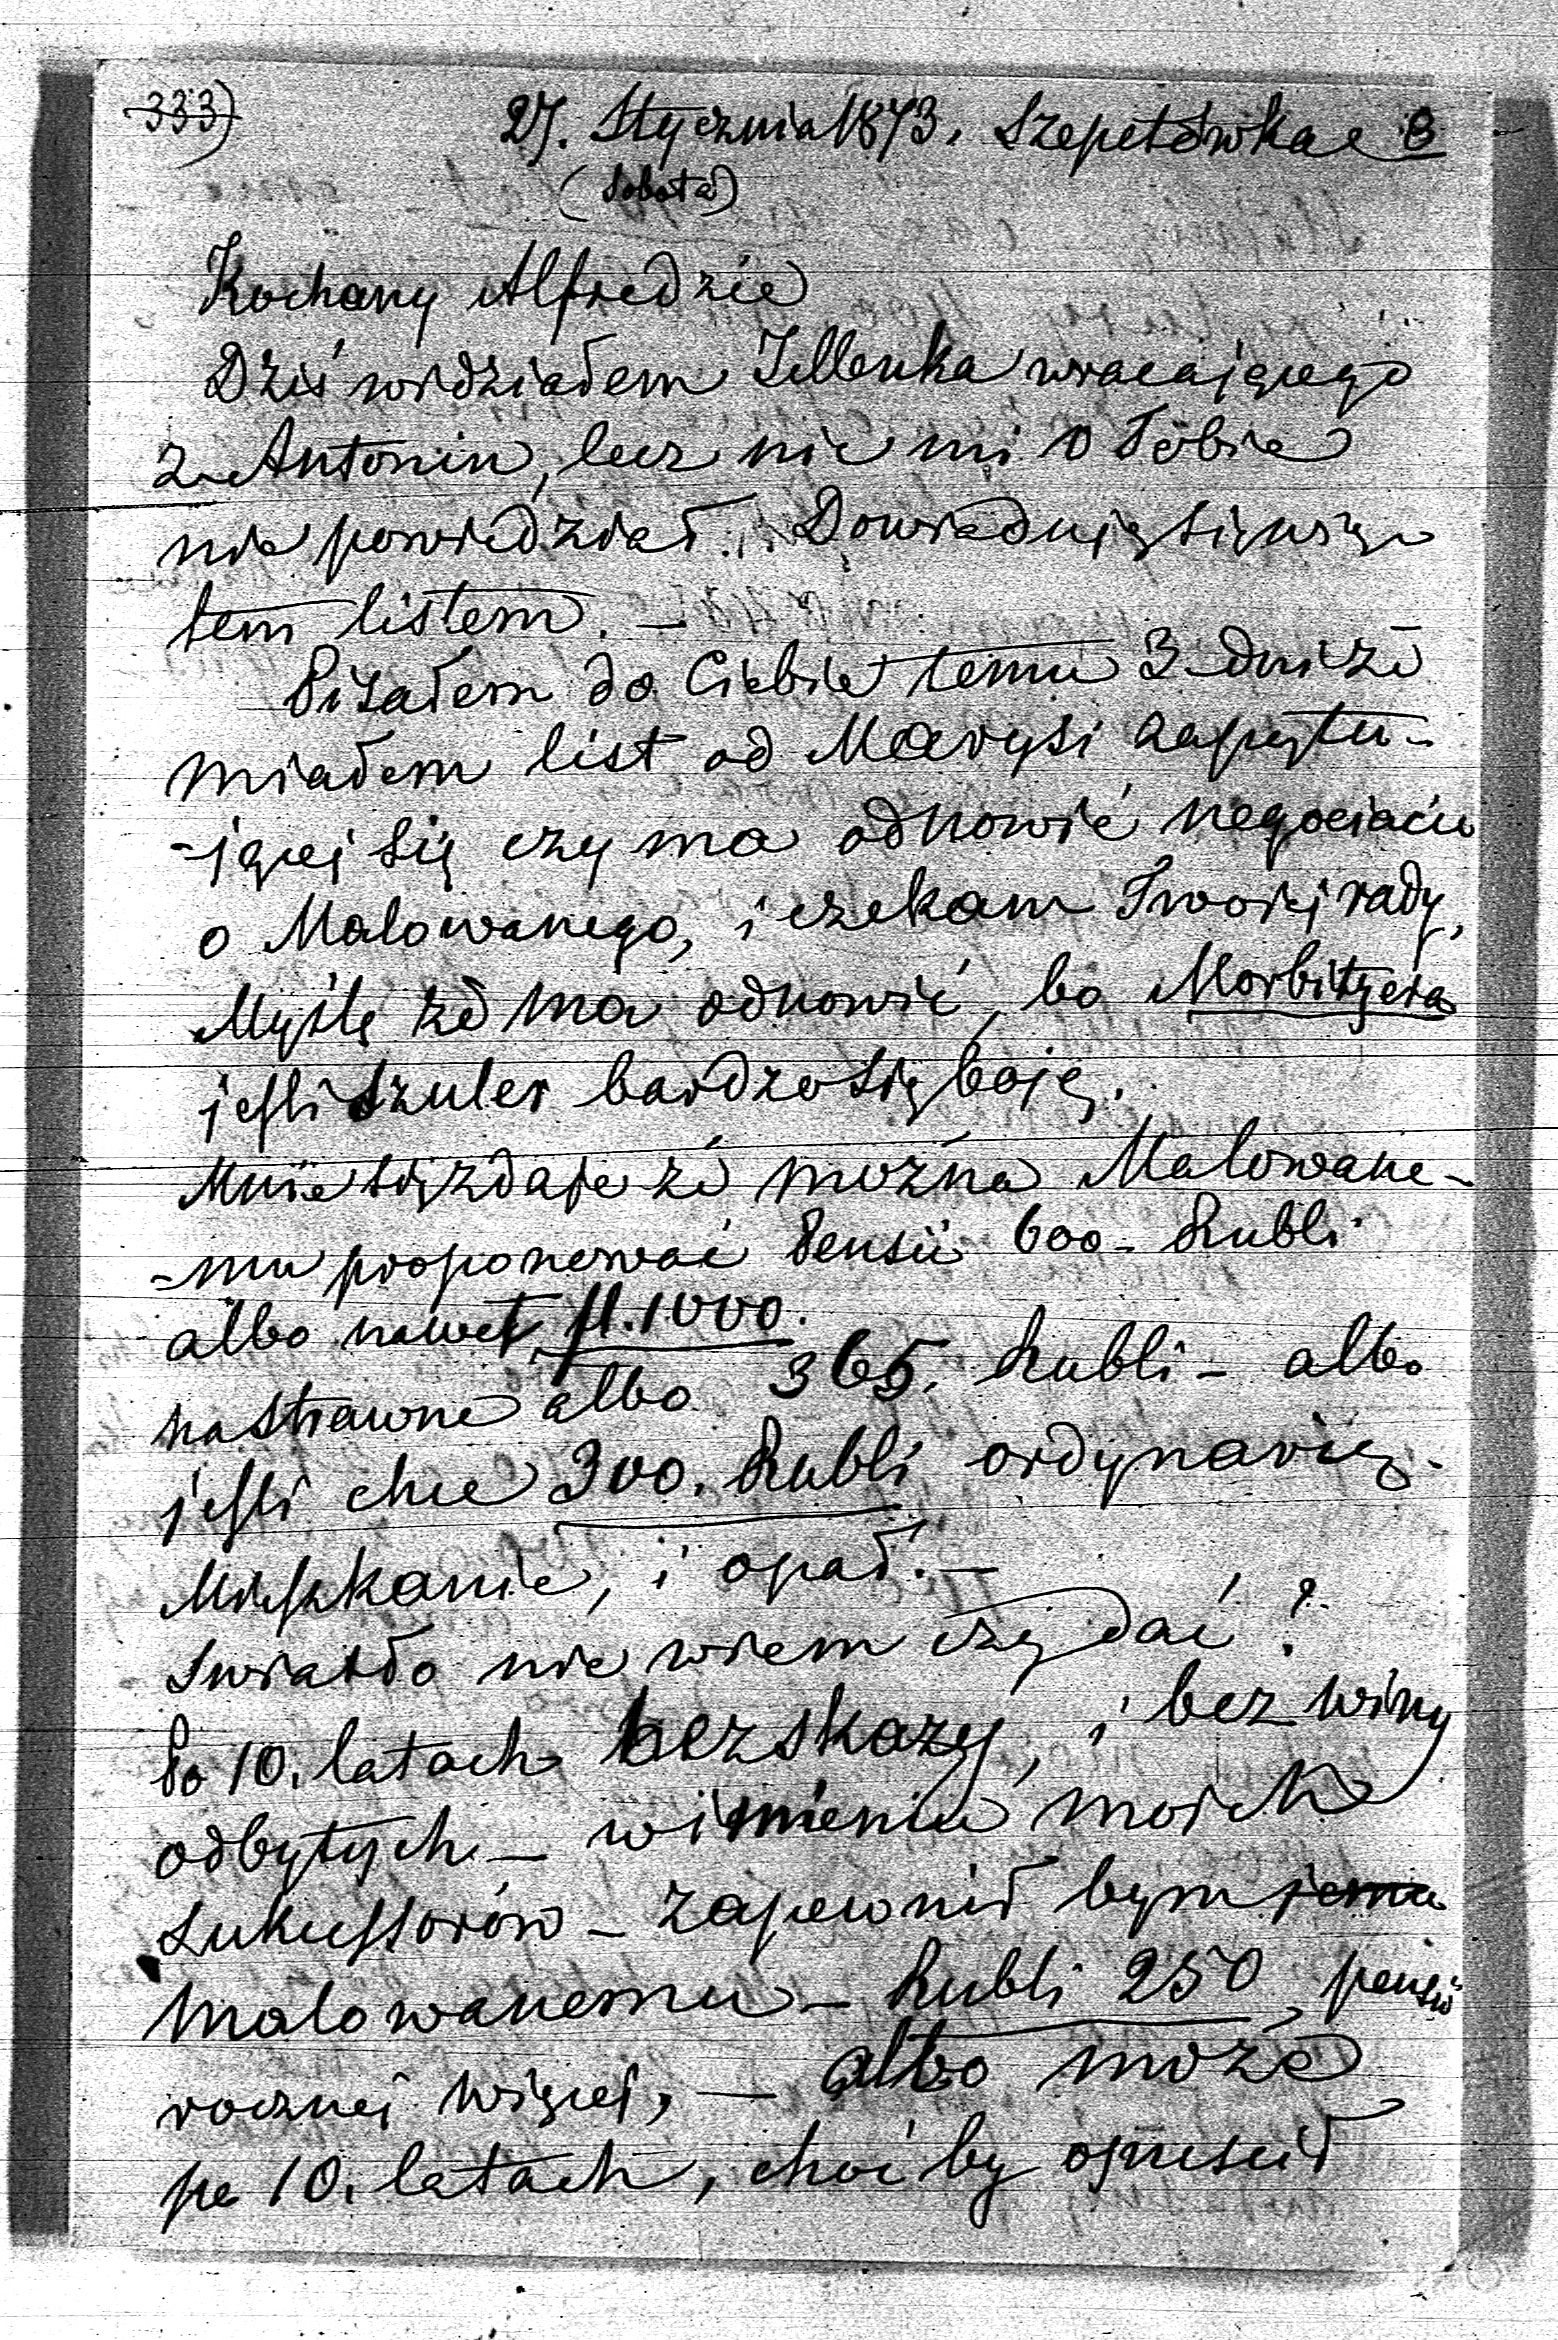 333)
27. Stycznia 1873. Szepetówka
(Sobota)
Kochany Alfredzie
Dziś widziałem Jellenka wracającego
z Antonin, lecz nic mi o Tobie
nie powiedział. Dowiaduję się więc
tem listem. —
Pisałem do Ciebie temu 3 dni że
miałem list od Marysi zapytu-
-jącej się czy ma odnowić negociacie
o Malowanego, i czekam Twojej rady,
Myślę że ma odnowić, bo Morbitzera
jeśli szuler bardzo się boję.
Mnie się zdaje że można Malowane-
-mu proponować Pensii 600 - Rubli
albo nawet fl. 1000.
na strawne albo 365. Rubli - albo
jeśli chce 300. Rubli ordynarię.
Mieszkanie, i opał. —
Swiatło nie wiem czy dać?
Po 10. latach bez skazy, i bez winy
odbytych — w imieniu moich
Sukcessorów — zapewnił bym jemu
Malowanemu — Rubli 250, pensii
rocznej więcej, — albo może
po 10. latach, choć by opuscił